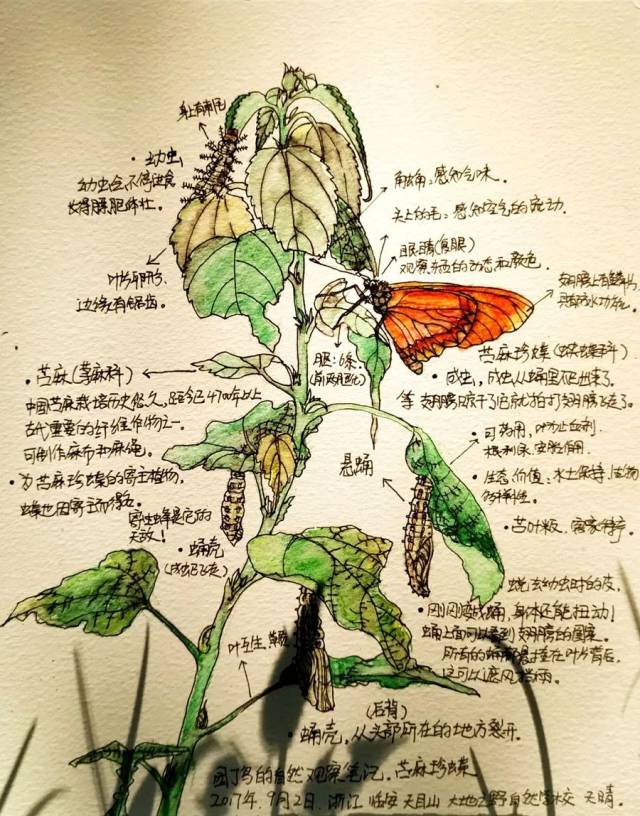 身上有刺毛
• 幼虫
幼虫会不停进食
长得膘肥体壮。
叶片卵形,
边缘有锯齿。
触角:感知气味。
头上的毛:感知空气的流动.
眼睛(复眼)
观察东西的动态和颜色.
翅膀上有鳞片,
腿:6条
苎麻珍蝶(蛱蝶科).
• 成虫,成虫从蛹里爬出来了.
等翅膀晾干了后就拍打翅膀飞走了.
• 苎麻(荨麻科)
中国苎麻栽培历史悠久,距今已4700年以上
古代重要的纤维作物之一
可制作麻布和麻绳。
• 为苎麻珍蝶的寄主植物.
蝶也因寄主而得名.
寄生蜂是它的
天敌!
• 蛹壳
(成虫已飞走)
悬蛹
• 可药用,
• 生态价值:水土保持,生物
多样性。
• 苎叶粄,客家特产.
蜕去幼虫时的皮,
• 刚刚变成蛹,身体还能扭动,
蛹上面可以看到翅膀的图案.
所有的蛹都悬挂在叶片背后,
这可以遮风挡雨.
叶互生,
(后背)
• 蛹壳,从头部所在的地方裂开.
园丁鸟的自然观察笔记.苎麻珍蝶
2017年.9月2日.浙江 临安 天目山 大地之野自然学校 天晴.